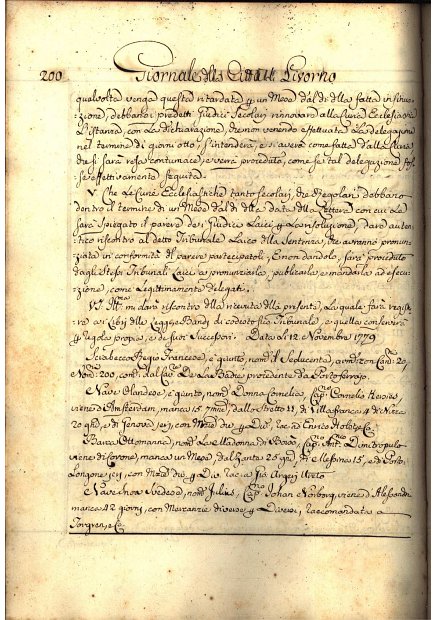 200 Giornale della Città di Livorno
qualvolta venga questa ritardata p un Mese dal dì della fatta insinua
:zione, debbano i predetti Giudici Secolari rinnovare alla Curia Ecclesiastica
L'Istanza, con La dichiarazione, che non venendo effettuata La delegazione
nel termine di giorni otto, s'intenderà, e si averà come fatta dalla Curia
che si sarà resa contumace, e verrà proceduto, come se tal delegazione fos:
:se effettivamente seguita.
V. Che Le Curie Ecclesiastiche tanto Secolari, che Regolari debbano
dentro il termine di un Mese dal dì della data della Lettera con cui Le
sarà spiegato il parere de i Giudici Laici p La risoluzione, dare auten:
:tico riscontro al detto Tribunale Laico della Sentenza, che avranno pronun:
ziata in conformità del parere partecipatoli, E non dandolo, sarà proceduto
dagli stessi Tribunali Laici a pronunziarla, publicarla e mandarla ad esecu:
:zione, come Legittimamente delegati.
VS. Ill.ma mi darà riscontro della ricevuta della presente, La quale farà regist:
:rare ai Libri delle Leggi e Bandi di codesto suo Tribunale, e quella conserverà
p regola propria, e de suoi Successori. Data Li 12 Novembre 1779
Sciabecco Regio Francese, è giunto, nom.o il Seducente, armato con Can: 20,
e Nom: 200, com.to dal Cav.e De La Badie procedente da Portoferrajo.
Nave Olandese, è giunta, nom.a Donna Cornelia, Cap.no Cornelio Heroies,
viene d'Amsterdam, manca 15 7mne, dallo Stretto 22, di Villafranca 4 di Nizza
20 ghd, e di Genova jeri, con Merci div.e p Div. rac.a Enrico
Barca Ottomanna, nom.a La Madonna di Cap.no Ant.o Dimitropulo
viene di Corone, manca un Mese, dal Zante 25 gni, di Messina 15, e di Porto
Longone jeri, con Merci div.e p Div. rac.a
Nave nova Svedese, nom.a Julius, Cap.no Johan Norborg, viene d'Alessandria
manca 42 giorni, con Mercanzie diverse p Diversi, raccomandata a
Torgren, e C.